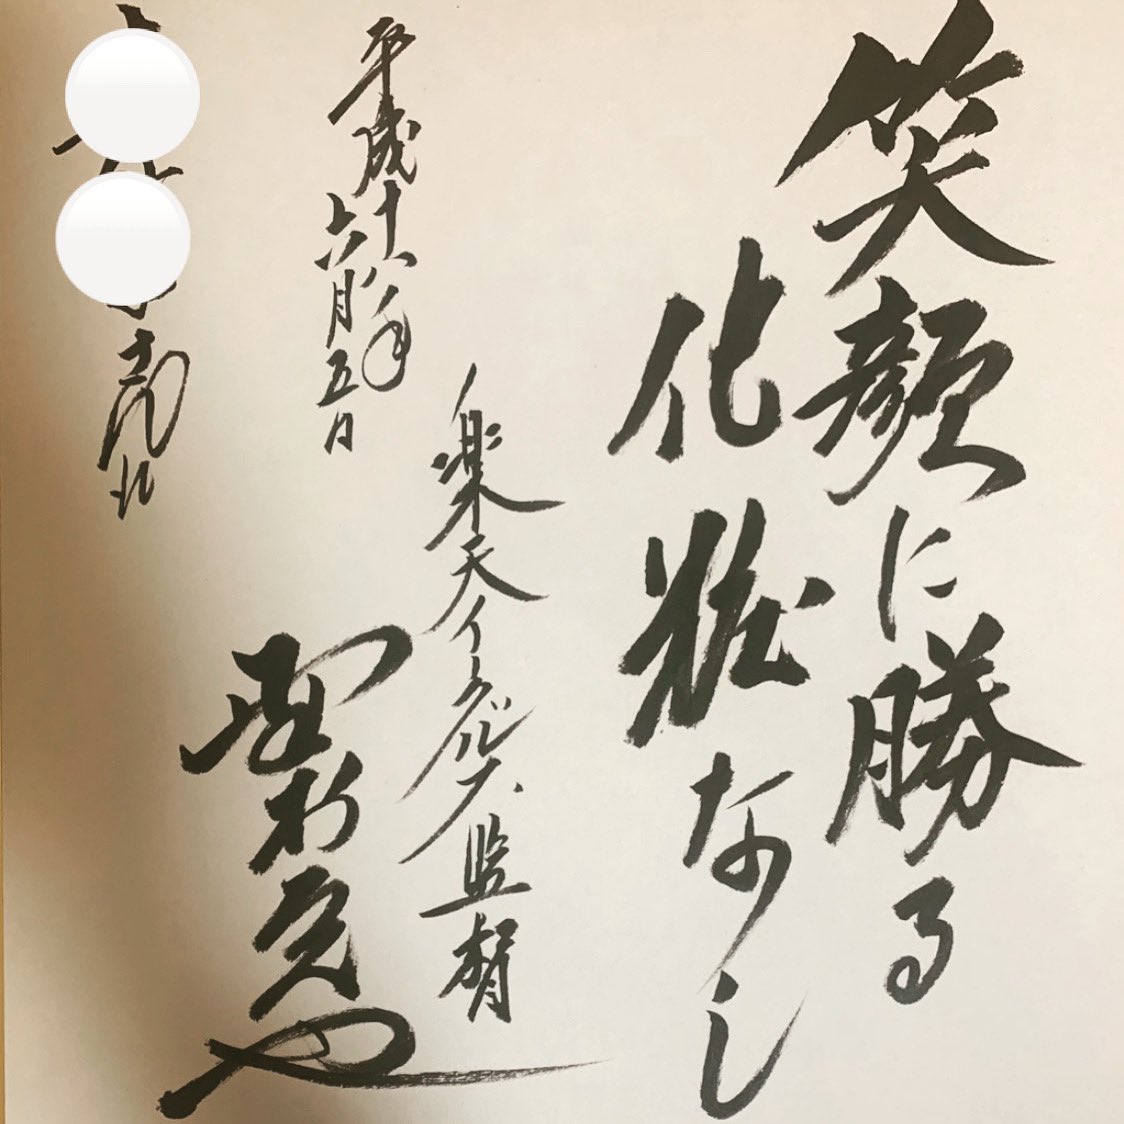 笑顔に勝る
化粧なし
楽天イーグルス監督
野村克也
平成十八年
六月五日